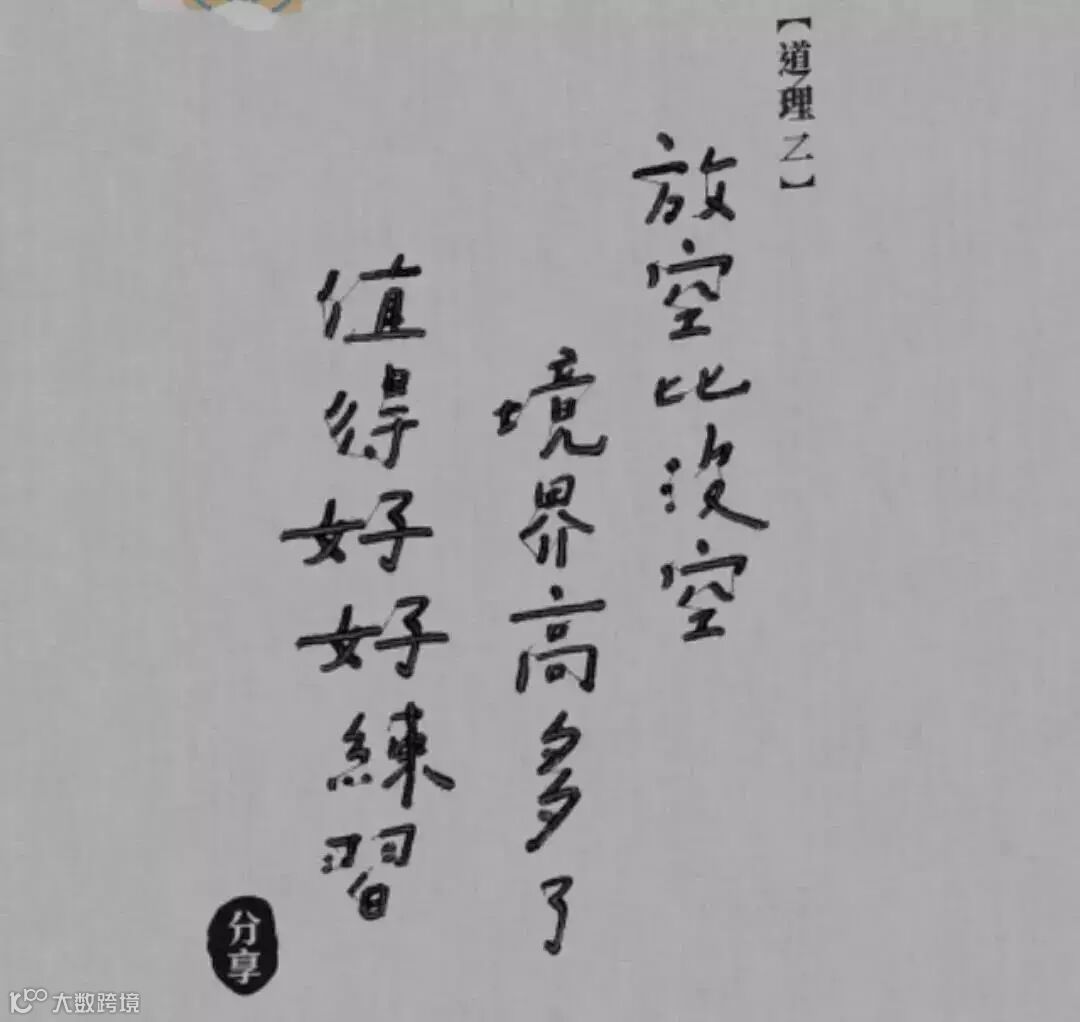 【道理乙】
放空比没空
境界高多了
值得好好練習
分享
大数跨境